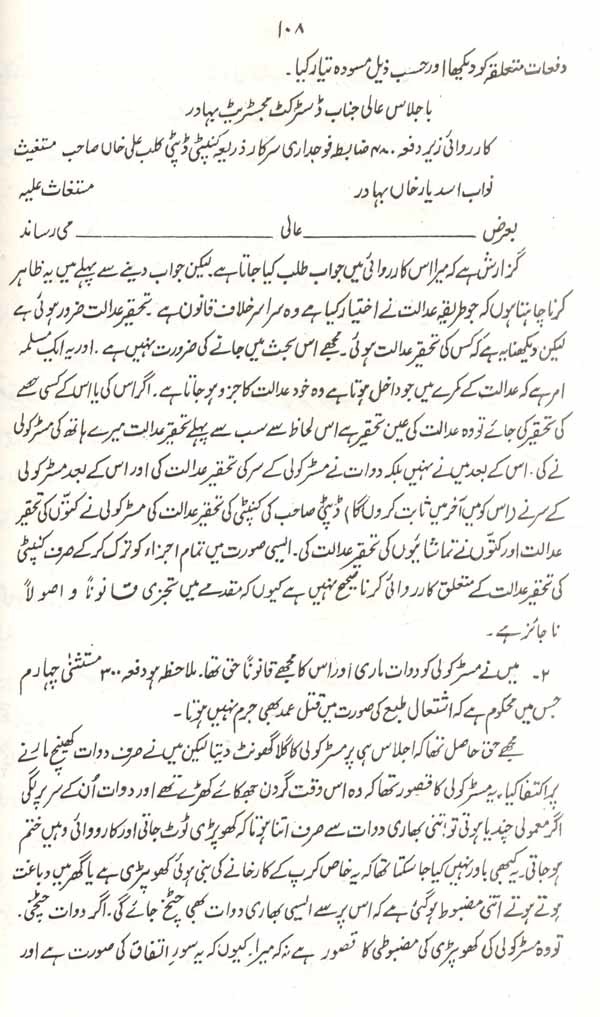 ۱۰۸
دفعات متعلقہ کو دیکھا اور حسب ذیل مسودہ تیار کیا۔
باجلاس عالی جناب ڈسٹرکٹ مجسٹریٹ بہادر
کارروائی زیر دفعہ ۴۸۰ ضابطہ فوجداری سرکار ذریعہ کنپٹی ڈپٹی کلب علی خاں صاحب مستغیث
نواب اسد یار خاں بہادر مستغاث علیہ
بعرض ـــــــــــ عالی ـــــــــــ می رساند
گزارش ہے کہ میرا اس کارروائی میں جواب طلب کیا جاتا ہے۔ لیکن جواب دینے سے پہلے میں یہ ظاہر
کرنا چاہتا ہوں کہ جو طریقہ عدالت نے اختیار کیا ہے وہ سراسر خلاف قانون ہے۔ تحقیر عدالت ضرور ہوئی ہے
لیکن دیکھنا یہ ہے کہ کس کی تحقیر عدالت ہوئی۔ مجھے اس بحث میں جانے کی ضرورت نہیں ہے۔ اور یہ ایک مسلمہ
امر ہے کہ عدالت کے کمرے میں جو داخل ہوتا ہے وہ خود عدالت کا جزو ہو جاتا ہے۔ اگر اس کی یا اس کے کسی حصے
کی تحقیر کی جائے تو وہ عدالت کی عین تحقیر ہے اس لحاظ سے سب سے پہلے تحقیر عدالت میرے ہاتھ کی مسٹر کولی
نے کی۔ اس کے بعد میں نے نہیں بلکہ دوات نے مسٹر کولی کے سر کی تحقیر عدالت کی اور اس کے بعد مسٹر کولی
کے سر نے (اس کو میں آخر میں ثابت کروں گا) ڈپٹی صاحب کی کنپٹی کی تحقیر عدالت کی مسٹر کولی نے کتوں کی تحقیر
عدالت اور کتوں نے تماشائیوں کی تحقیر عدالت کی۔ ایسی صورت میں تمام اجزاء کو ترک کر کے صرف کنپٹی
کی تحقیر عدالت کے متعلق کارروائی کرنا صحیح نہیں ہے کیوں کہ مقدمے میں تجزی قانوناً و اصولاً
ناجائز ہے۔
۲۔ میں نے مسٹر کولی کو دوات ماری اور اس کا مجھے قانوناً حق تھا۔ ملاحظہ ہو دفعہ ۳۰۰ مستثنیٰ چہارم
جس میں محکوم ہے کہ اشتعال طبع کی صورت میں قتل عمد بھی جرم نہیں ہوتا۔
مجھے حق حاصل تھا کہ اجلاس ہی پر مسٹر کولی کا گلا گھونٹ دیتا لیکن میں نے صرف دوات کھینچ مارنے
پر اکتفا کیا۔ یہ مسٹر کولی کا قصور تھا کہ وہ اس وقت گردن جھکائے کھڑے تھے اور دوات اُن کے سر پر لگی
اگر معمولی چندیا ہوتی تو اتنی بھاری دوات سے صرف اتنا ہوتا کہ کھوپڑی ٹوٹ جاتی اور کارووائی وہیں ختم
ہو جاتی۔ یہ کبھی باور نہیں کیا جا سکتا تھا کہ یہ خاص کرپ کے کارخانے کی بنی ہوئی کھوپڑی ہے یا گھر میں دباغت
ہوتے ہوتے اتنی مضبوط ہو گئی ہے کہ اس پر سے ایسی بھاری دوات بھی چٹخ جائے گی۔ اگر دوات چٹخی،
تو وہ مسٹر کولی کی کھوپڑی کی مضبوطی کا قصور ہے نہ کہ میرا۔ کیوں کہ یہ سوءِ اتفاق کی صورت ہے اور